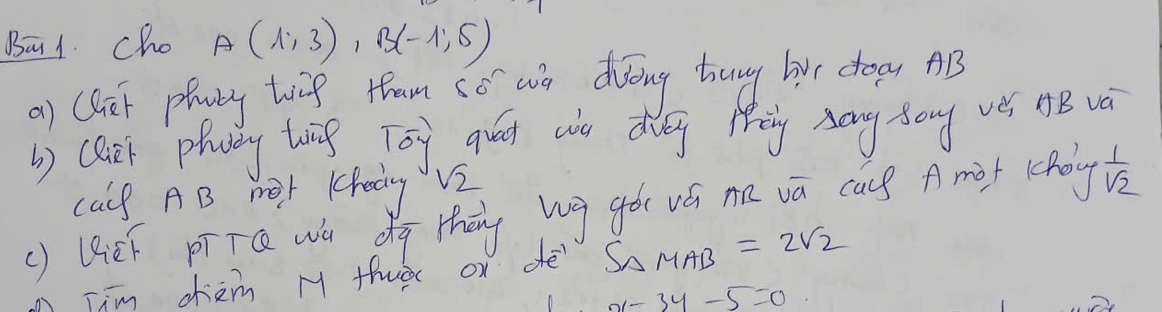 Bài 1. Cho A(1; 3), B(-1; 5)
a) Viết phương trình tham số của đường trung trực đoạn AB
b) Viết phương trình Tổng quát của đường thẳng song song với AB và
cách AB một khoảng √2
c) Viết PTTQ của đg thẳng vuông góc với AB và cách A một khoảng 1/√2
d) Tìm điểm M thuộc ox để S∆MAB = 2√2
x - 3y - 5 = 0.